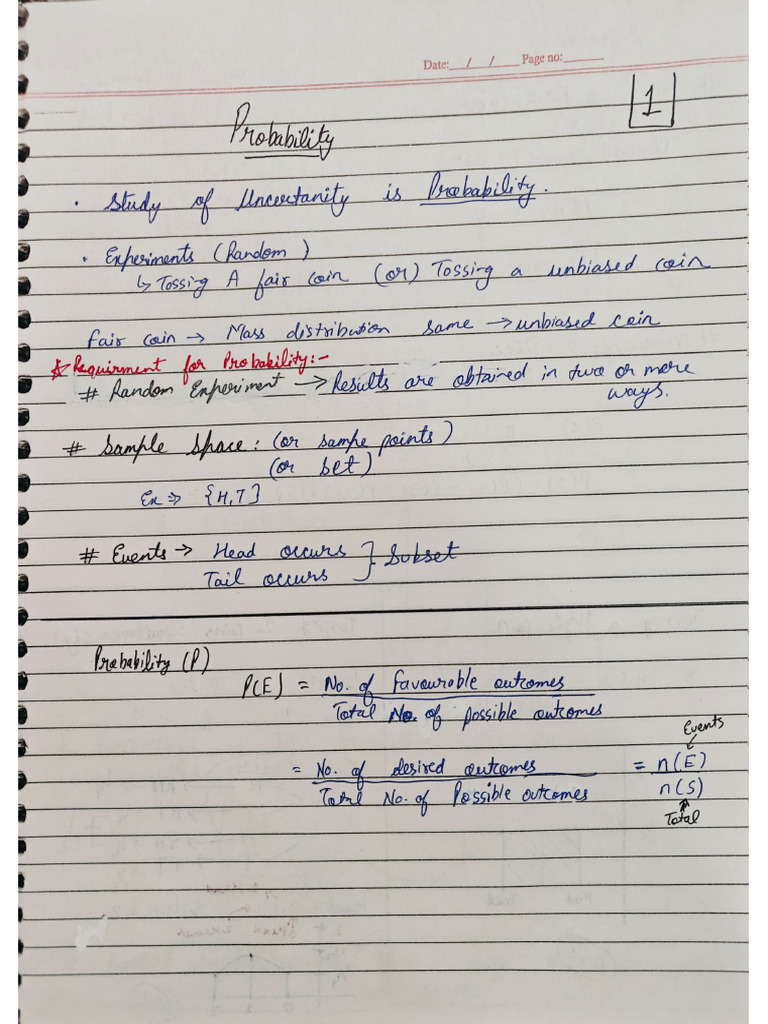 Date:__/__/__ Page no:______
1
Probability
. Study of Uncertanity is Probability.
. Experiments (Random)
↳ Tossing A fair coin (or) Tossing a unbiased coin
Fair coin → Mass distribution same → unbiased coin
☆ Requirment for Probability:-
# Random Experiment → Results are obtained in two or more
ways.
# Sample Space: (or sampe points)
(or set)
Ex ⇒ {H,T}
# Events → Head occurs } Subset
Tail occurs
Probability (P)
P(E) = No. of favourable outcomes
Total No. of possible outcomes
Events
= No. of desired outcomes = n(E)
Total No. of Possible outcomes n(S)
Total